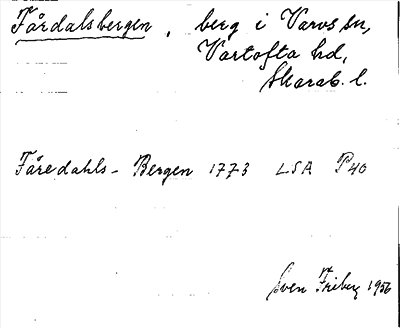 Fårdalsbergen, berg i Varvs sn,
Vartofta hd,
Skarab. l.
Fåredahls-Bergen 1773 LSA P40
Sven Friberg 1956